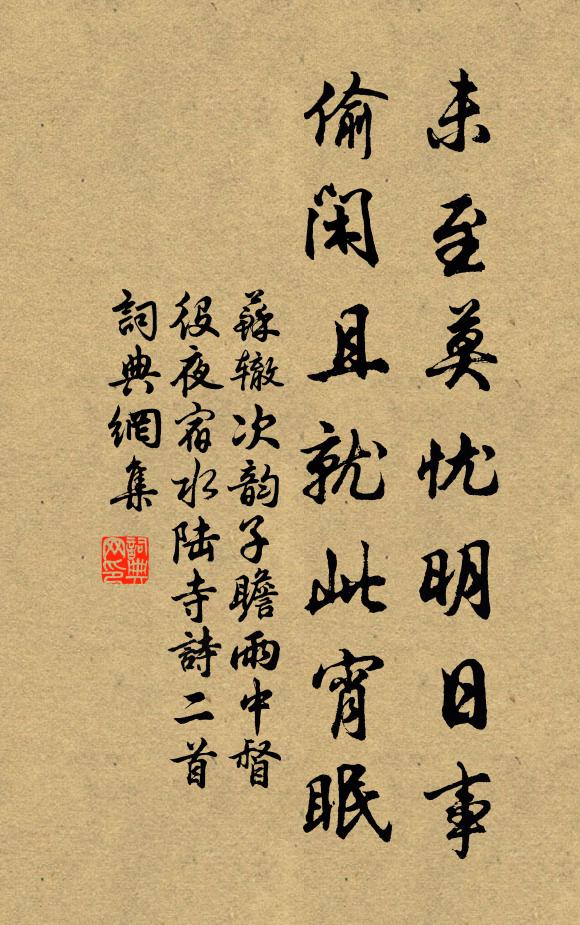 未至莫忧明日事
偷闲且就此宵眠
蘇辙次韵子瞻雨中督
役夜宿水陆寺詩二首
詞典網集
詞典
网印